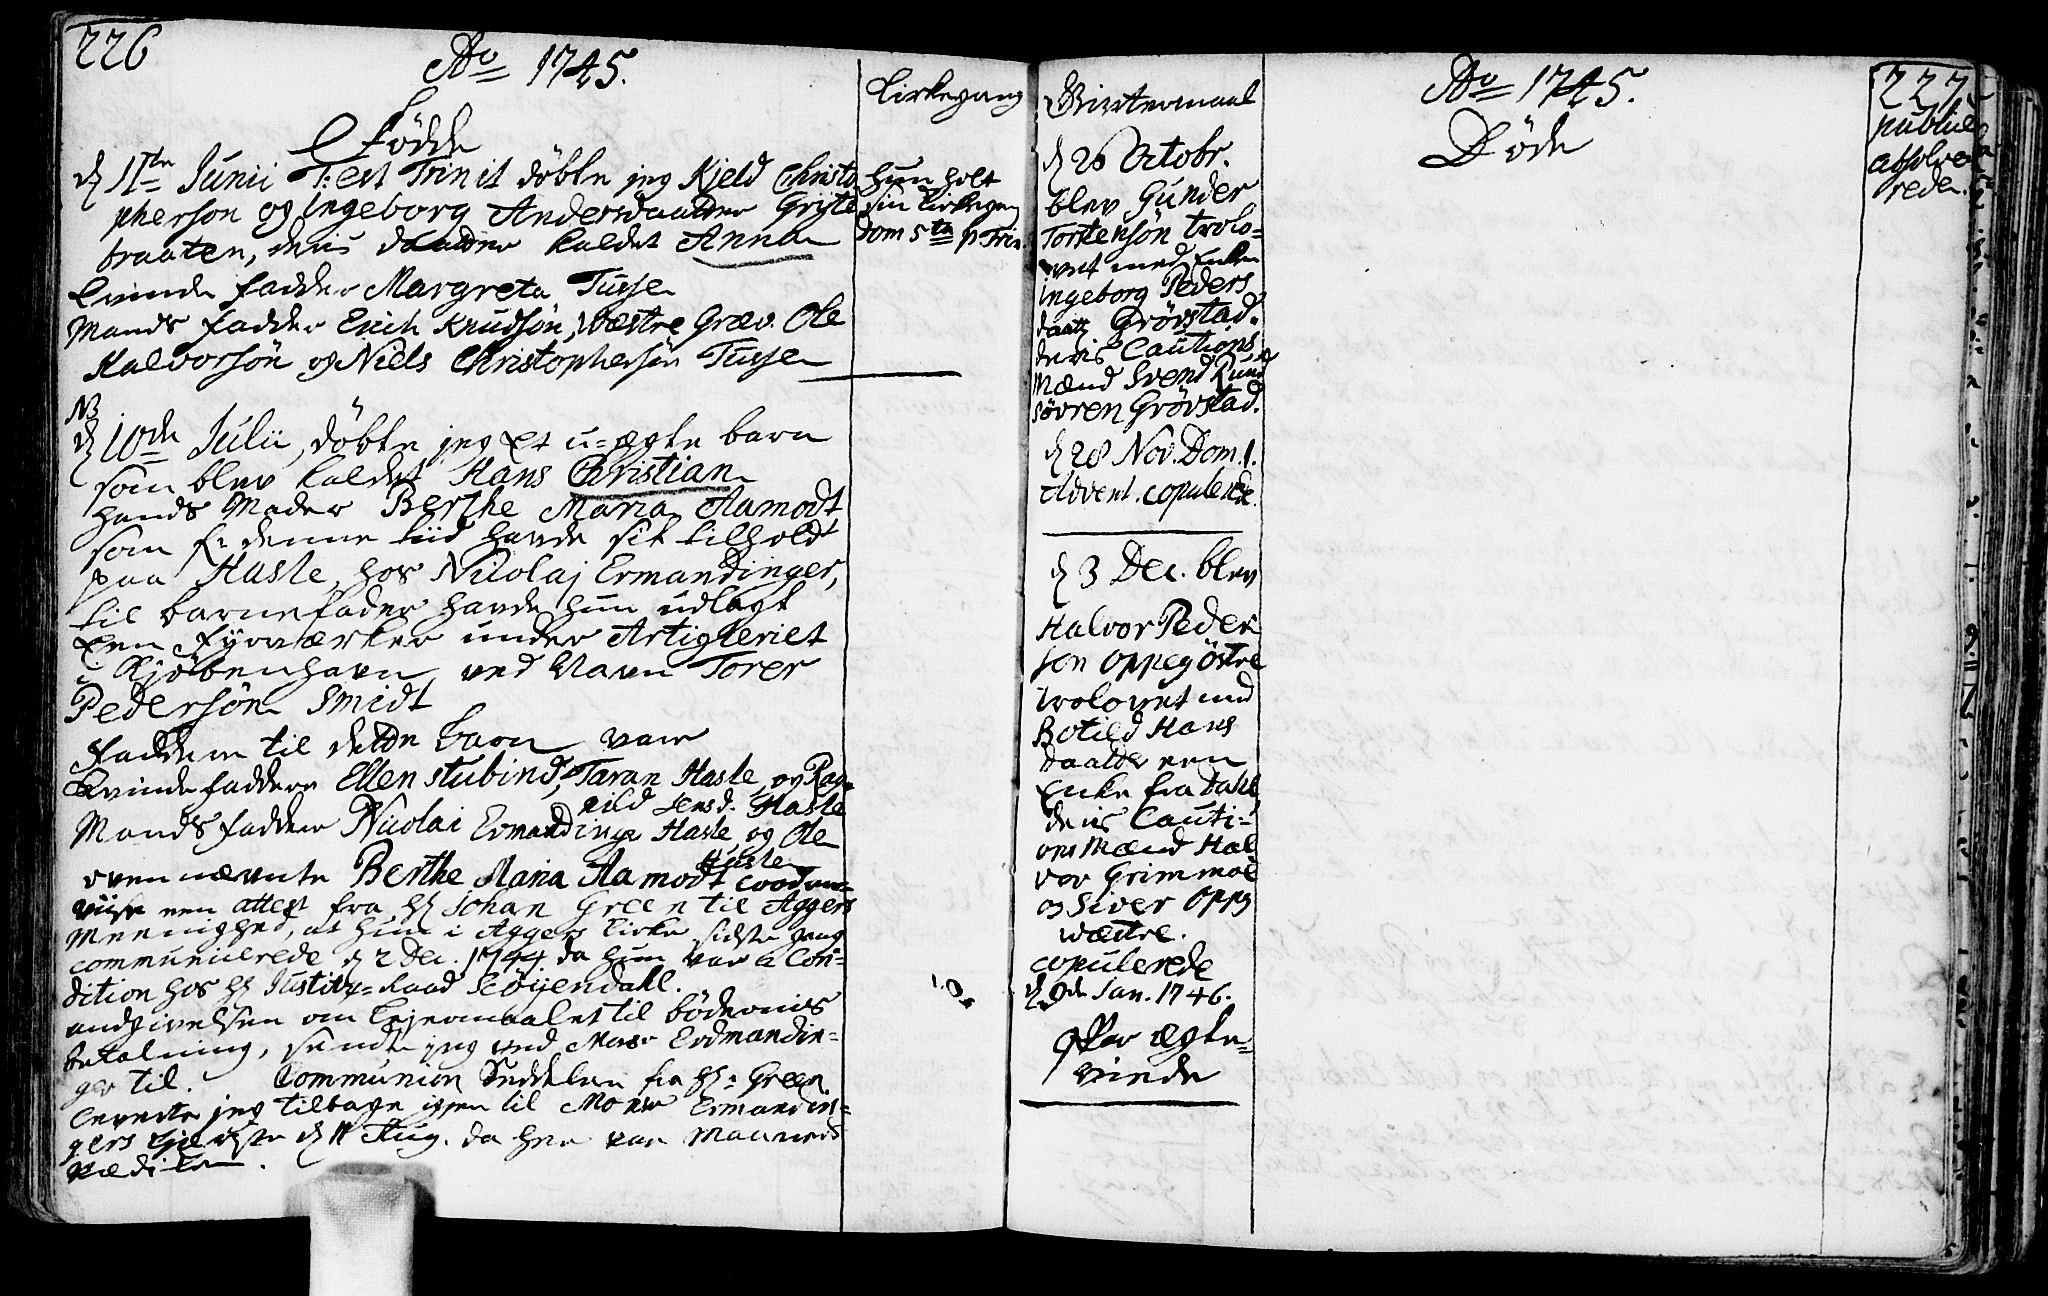 226
Ao 1745.
Fødde
d 11te Junii Fest Trinit døbte jeg Kjeld Christo
pherson og Ingeborg Andersdaatter Gryte
braaten, deris daatter kaldet Anna
Qvinde fadder Margreta Tusse
Mands fadder Erich Knudsøn, Wæstre Græv. Ole
Halvorsøn og Niels Christophersøn Tusse
NB
d 10de Julii, døbte jeg Et u-ægte barn
som blev kaldet Hans Christian
hands Moder Berthe Maria Aamodt
som denne tiid havde sit tilhold
paa Hasle, hos Nicolaj Ermandinger,
til barnefader havde hun udlagt
Een Fyrværker under Artigleriet
i Kjøbenhavn, ved Navn Torer
Pedersøn Smidt
Faddere til dette barn vare
Qvinde faddere Ellen Stubind, Taran Hasle, og Rag-
nild Jensd. Hasle
Mands faddere Nicolai Ermandinger Hasle og Ole
Hasle
ovennævnte Berthe Maria Aamodt
viise een attest fra H Johan Green til Aggers
Meenighed, at hun i Aggers Kirke sidste gang
communicerede d 2 Dec. 1744 da hun var a Con-
dition hos H Justitz-Raad Scøyendahl.
andgivelsen om Lejermaalet til bødernis
betalning, sendte jeg ved Monsr Erdmandin-
ger til. Communion Seddelen fra H: Green
leverte jeg tilbage igjen til Monsr Ermandin-
gers d 11 Aug. da hun var

Kirkegang
hun holt
sin Kirkegang
Dom 5te p Trin.

Giftermaal
d 26 Octobr.
blev Gunder
Torstensøn trolo-
vet med Enken
Ingeborg Peders
daatt Grøvstad.
deris Cautions
Mænd Svend Rund
Søvren Grøvstad.
d 28 Nov. Dom. 1.
Advent. copulerede.
d 3 Dec. blev
Halvor Peder
søn Oppegøstre
trolovet med
Botild Hans
daatter een
Enke fra Dahl
deris Cauti-
ons Mænd Hal
vor Grimmoe
og Siver Oppg
wæstre.
copulerede
d 9de Jan. 1746.
Par ægte-
viede

Ao 1745.
Døde

227
public
absolve
rede.